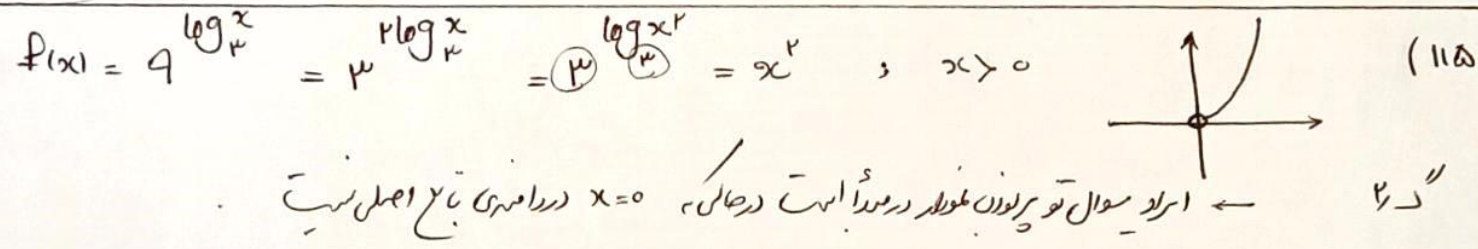 ۱۱۵) f(x) = ۹^{log_۳^x} = ۳^{۲log_۳^x} = ۳^{log_۳^{x^۲}} = x^۲ ; x > ۰
گزر۲ ← ایراد سوال تو پر بودن نمودار در مبدأ است درحالیکه x=۰ در دامنه‌ی تابع اصلی نیست .